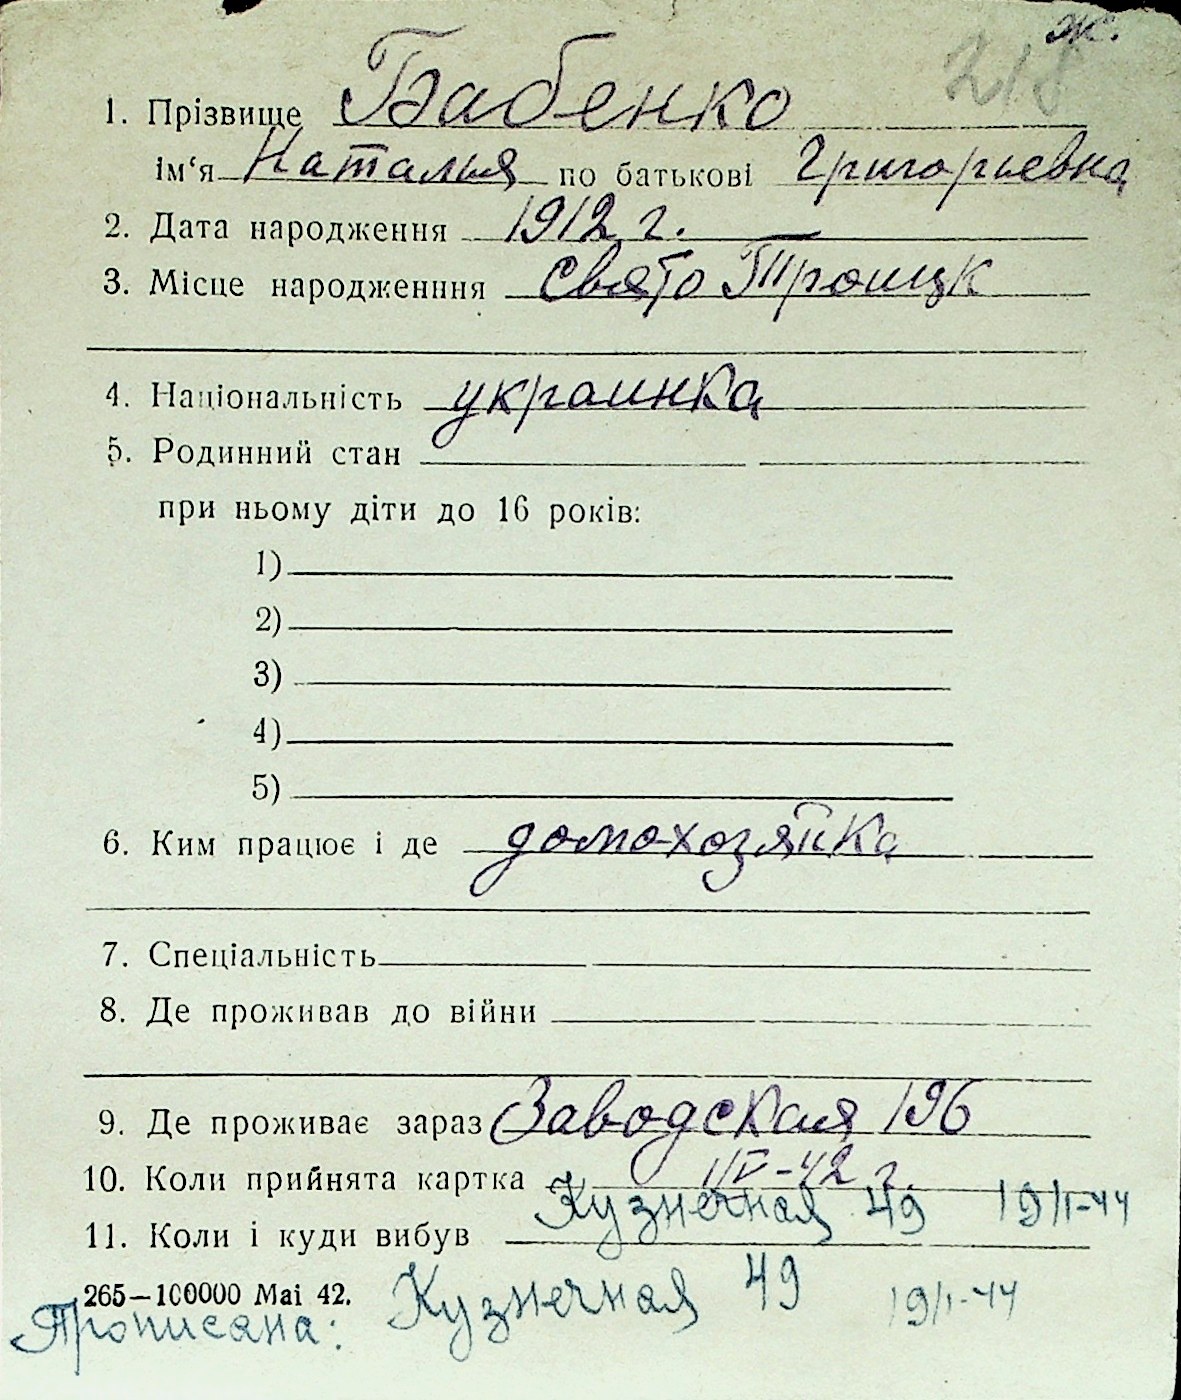 ж.
218
1. Прізвище Бабенко
ім‘я Наталья по батькові Григорьевна
2. Дата народження 1912 г.
3. Місце народженння Свято Троицк
4. Національність украинка
5. Родинний стан
при ньому діти до 16 років:
1)
2)
3)
4)
5)
6. Ким працює і де домохозяйка
7. Спеціальність
8. Де проживав до війни
9. Де проживає зараз Заводская 196
10. Коли прийнята картка 1/V-42 г.
Кузнечная 49 19/I-44
11. Коли і куди вибув
265—100000 Маі 42. Кузнечная 49 19/I-44
Прописана: